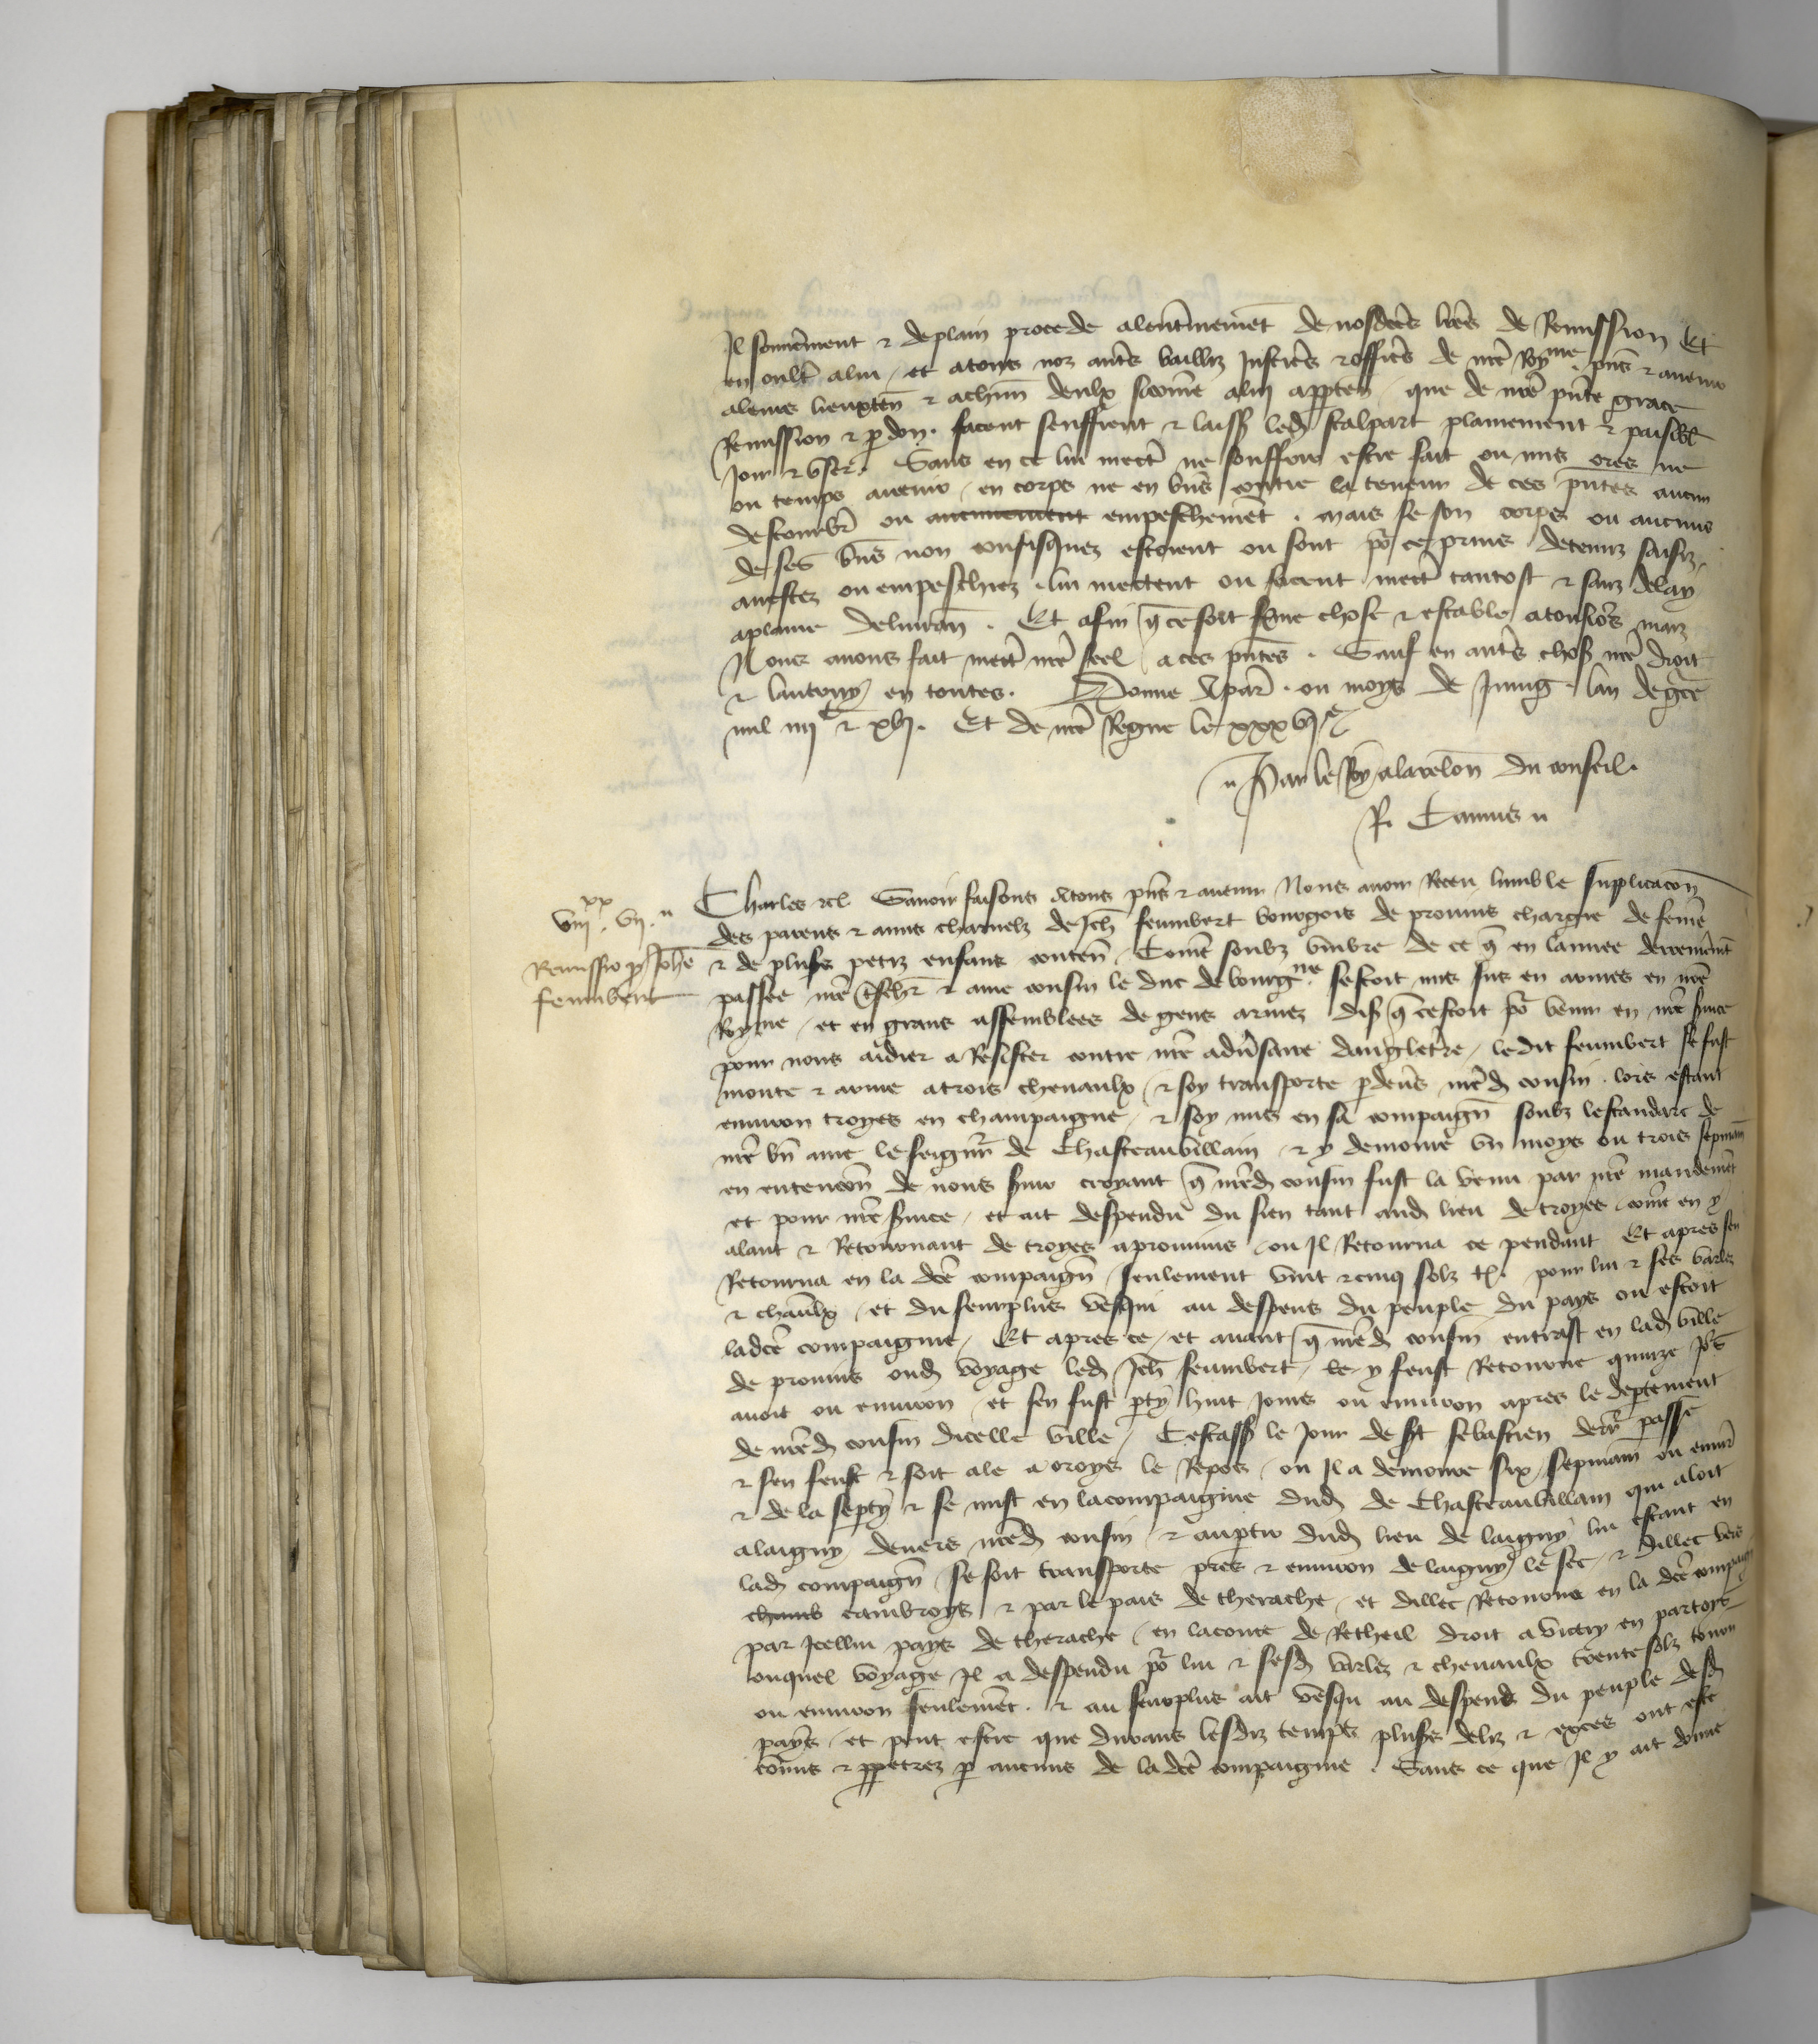 Il sommerment & deplain procede alenterinement de nosdctes lres de Remission Et
en oultre alui et atous noz autrs bailliz Justiciers & officiers de nre Royme pns & auenir
aleurs lieuxten & achun deulx sicomme alui apparten que de nre pnte grace
Remission & pdon facent seuffrent & laissent led stalpart plainement & paisiblt
Jouir & vser Sans en ce lui mectre ne souffrir estre fait ou mis ores ne
ou temps auenir en corps ne en biens contre la teneur de ces pntes aucun
destourbr ou aucunement empeschemet mais se son corps ou aucuns
de ses biens non confisquez estoient ou sont por ce prins detenuz saisiz
arrestez ou empeschiez lui mectent ou facent mectre tantost & sanz delay
aplaine deliuran Et afin q ce soit ferme chose & estable atousiors maiz
Nous auons fait mectre nre seel a ces pntes Sauf en autrs choses nre droit
& lautruy en toutes Donne apar ou moys de Juing lan de grce
mil iiijc & xvj Et de nre Regne le xxxvje
Par le Roy alarelon du conseil
R Camus
viijxx vij
Remissio p Johe
feuubert
Charles &c Sauoir faisons atous pns & auenir Nous auoir Receu lumble supplicacon
des parens & amis charnelz de Jeh feuubert bourgois de prouins chargie de feme
& de pluss petiz enfans conten Come soubz vmbre de ce q en lannee derremet
passee nre treschr & ame cousin le duc de bourgne sestoit mis sus en armes en nre
Royme et en grans assemblees de gens armez dis q cestoit por venir en nre seruice
pour nous aidier a Resister contre nre aduersaire dangleterre ledit feuubert se fust
monte & arme atrois cheuaulx & soy transporte p deuers nred cousin lors estant
enuiron troyes en champaigne & soy mis en sa compaign soubz lestandart de
nre bn ame le seignr de Chasteauvillain & y demoure vn moys ou trois sepman
en entencon de nous seruir croyant q nred cousin fust la venu par nre mandemet
et pour nre seruice et ait despendu du sien tant aud lieu de troyes come en y
alant & Retournant de troyes aprouins ou Il Retourna ce pendant Et apres sen
Retourna en la dce compaign seulement vint & cinq solz tz pour lui & ses varlez
& chaulx et du seurplus vesqui au despens du peuple du pays ou estoit
ladce compaignie Et apres ce et auant q nred cousin entrast en lad ville
de prouins oud voyage led Jeh feuubert y feust Retourne quinze jors
auoit ou enuiron et sen fust pty huit jours ou enuiron apres le deptement
de nred cousin dicelle ville Cestass le jour de st sebastien derr passe
& sen feust & soit ale a oroyes le Repos ou Il a demoure six sepmain ou enuir
& de la septy & se mist en lacompaignie dud de Chasteauvillain qui aloit
alaigny deuers nred cousin & au ptir dud lieu de laigny lui estant en
lad compaign se soit transporte pres & enuiron de laigny le sec & dillec vers
chamb cambroys & par le pais de therache et dillec Retourne en la dce compaign
par Icellui pays de therache en laconte de Retheil droit a victry en partoys
ouquel voyage Il a despendu por lui & sesd varlez & cheuaulx trente solz tourn
ou enuiron seulemet & au seurplus ait vesqu au despens du peuple desd
pays et peut estre que durans lesdiz temps pluss deliz & exces ont este
comis & ppetrez p aucuns de la dce compaignie Sans ce que Il y ait donne